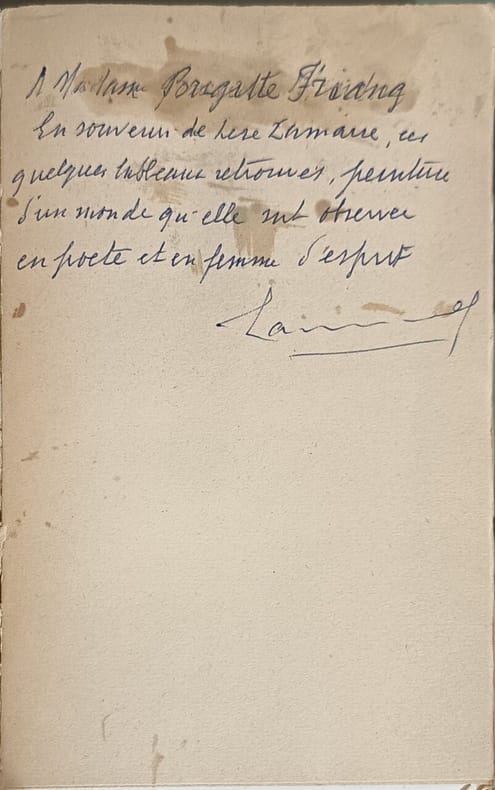 A Madame Brigitte Friang
En souvenir de Lise Lamarre, ces
quelques tableaux retrouvés, peinture
d'un monde qu'elle sut observer
en poète et en femme d'esprit